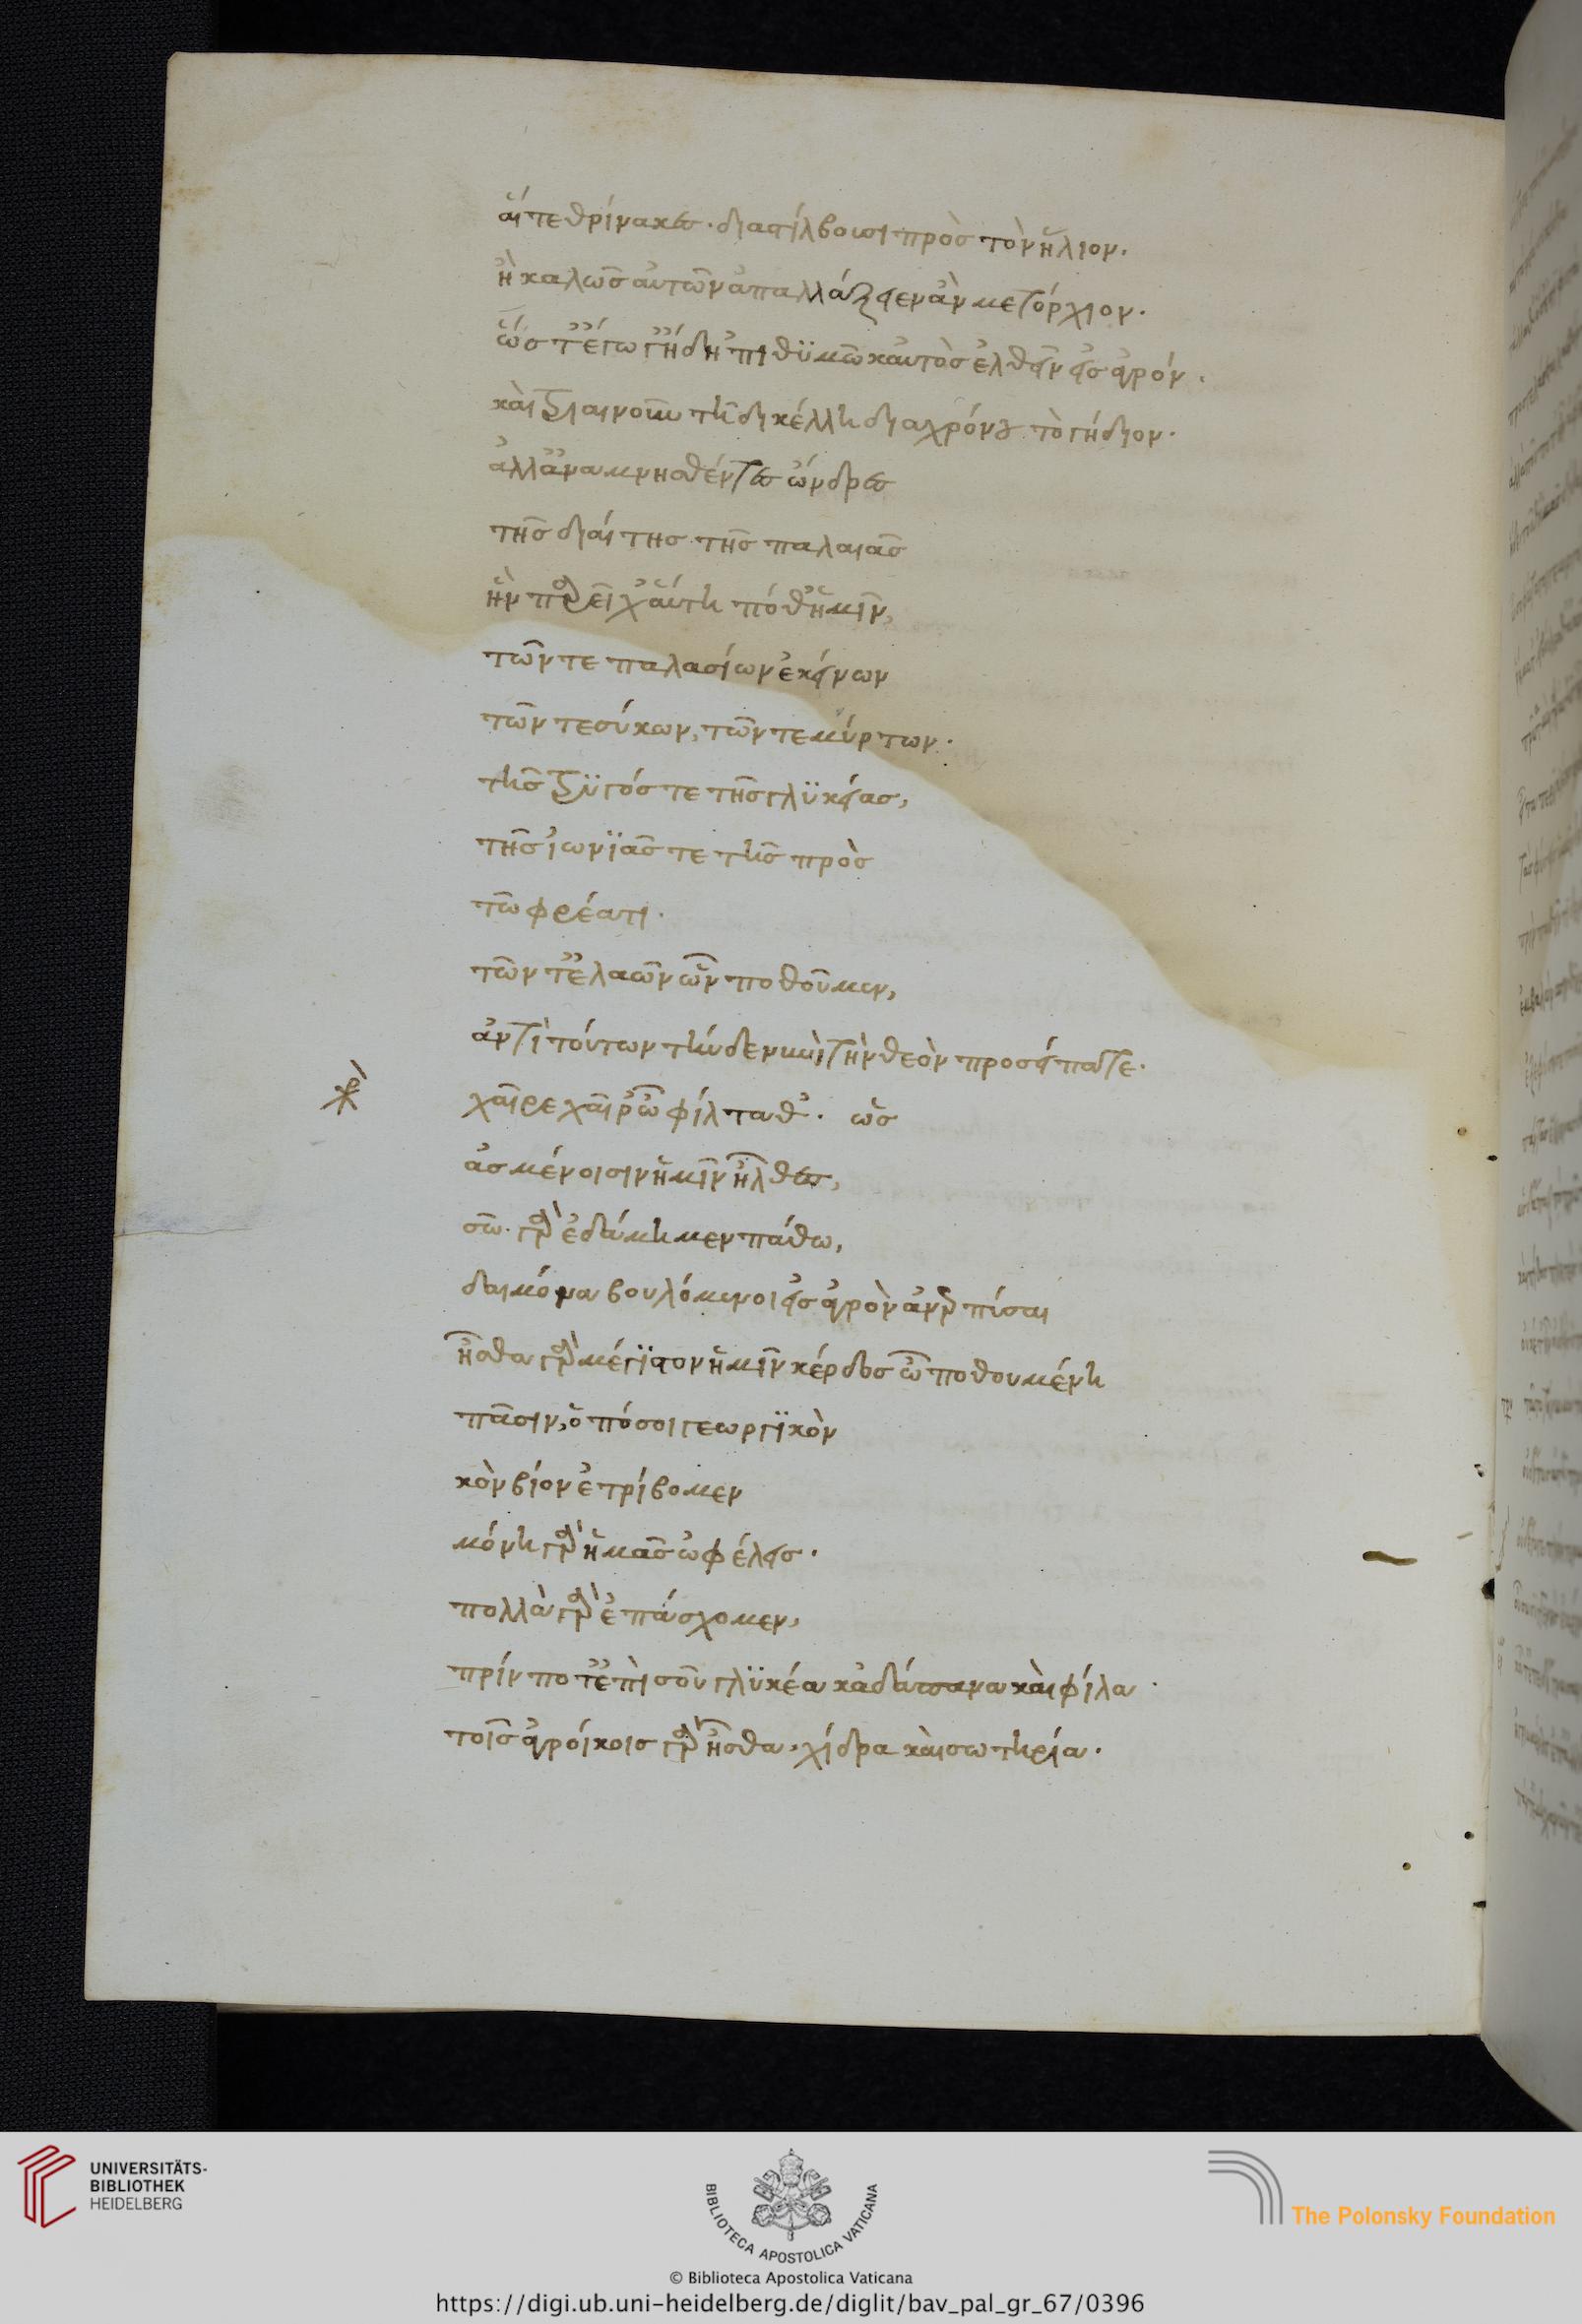 αἵ τε θρίνακες. διαστίλβουσι πρὸς τὸν ἥλιον.
ἢ καλῶς αὐτῶν ἀπαλλάξειεν ἂν μετόρχιον.
ὥστ' ἔγωγ' ἤδη 'πιθϋμῶ καὐτὸς ἐλθεῖν εἰς ἀγρόν.
καὶ τριαινοῦν τῆ δικέλλη διαχρόνου τὸ γήδιον.
ἀλλ' ἀναμνησθέντες ὦνδρες
τῆς διαίτης τῆς παλαιᾶς
ἣν παρεῖχ' αὕτη πόθ' ἡμῖν,
τῶν τε παλασίων ἐκείνων
τῶν τε σύκων, τῶν τε μύρτων.
τῆς τρϋγός τε τῆς γλϋκείας,
τῆς ἰωνϊᾶς τε τῆς πρὸς
τῶ φρέατι.
τῶν τ' ἐλαῶν ὧν ποθοῦμεν,
ἀντὶ τούτων τήνδε νυνὶ τὴν θεὸν προσείπατε.
χρ χαῖρε χαῖρ' ὦ φίλταθ'. ὡς
ἀσμένοισιν ἡμῖν ἦλθες,
σῶ. γὰρ ἐδάμημεν πόθω,
δαιμόνια βουλόμενοι εἰς ἀγρὸν ἀνερπίσαι
ἦσθα γὰρ μέγϊστον ἡμῖν κέρδος ὦ ποθουμένη
πᾶσιν, ὁπόσοι γεωργϊκὸν
κὸν βίον ἐτρίβομεν
μόνη γὰρ ἡμᾶς ὠφέλεις.
πολλὰ γὰρ ἐπάσχομεν,
πρίν ποτ' ἐπὶ σοῦ γλϋκέα κἀδάπανα καὶ φίλα.
τοῖς ἀγροίκοις γὰρ ἦσθα, χίδρα καὶ σωτηρία.
UNIVERSITÄTS-
BIBLIOTHEK
HEIDELBERG
BIBLIOTECA APOSTOLICA VATICANA
The Polonsky Foundation
© Biblioteca Apostolica Vaticana
https://digi.ub.uni-heidelberg.de/diglit/bav_pal_gr_67/0396